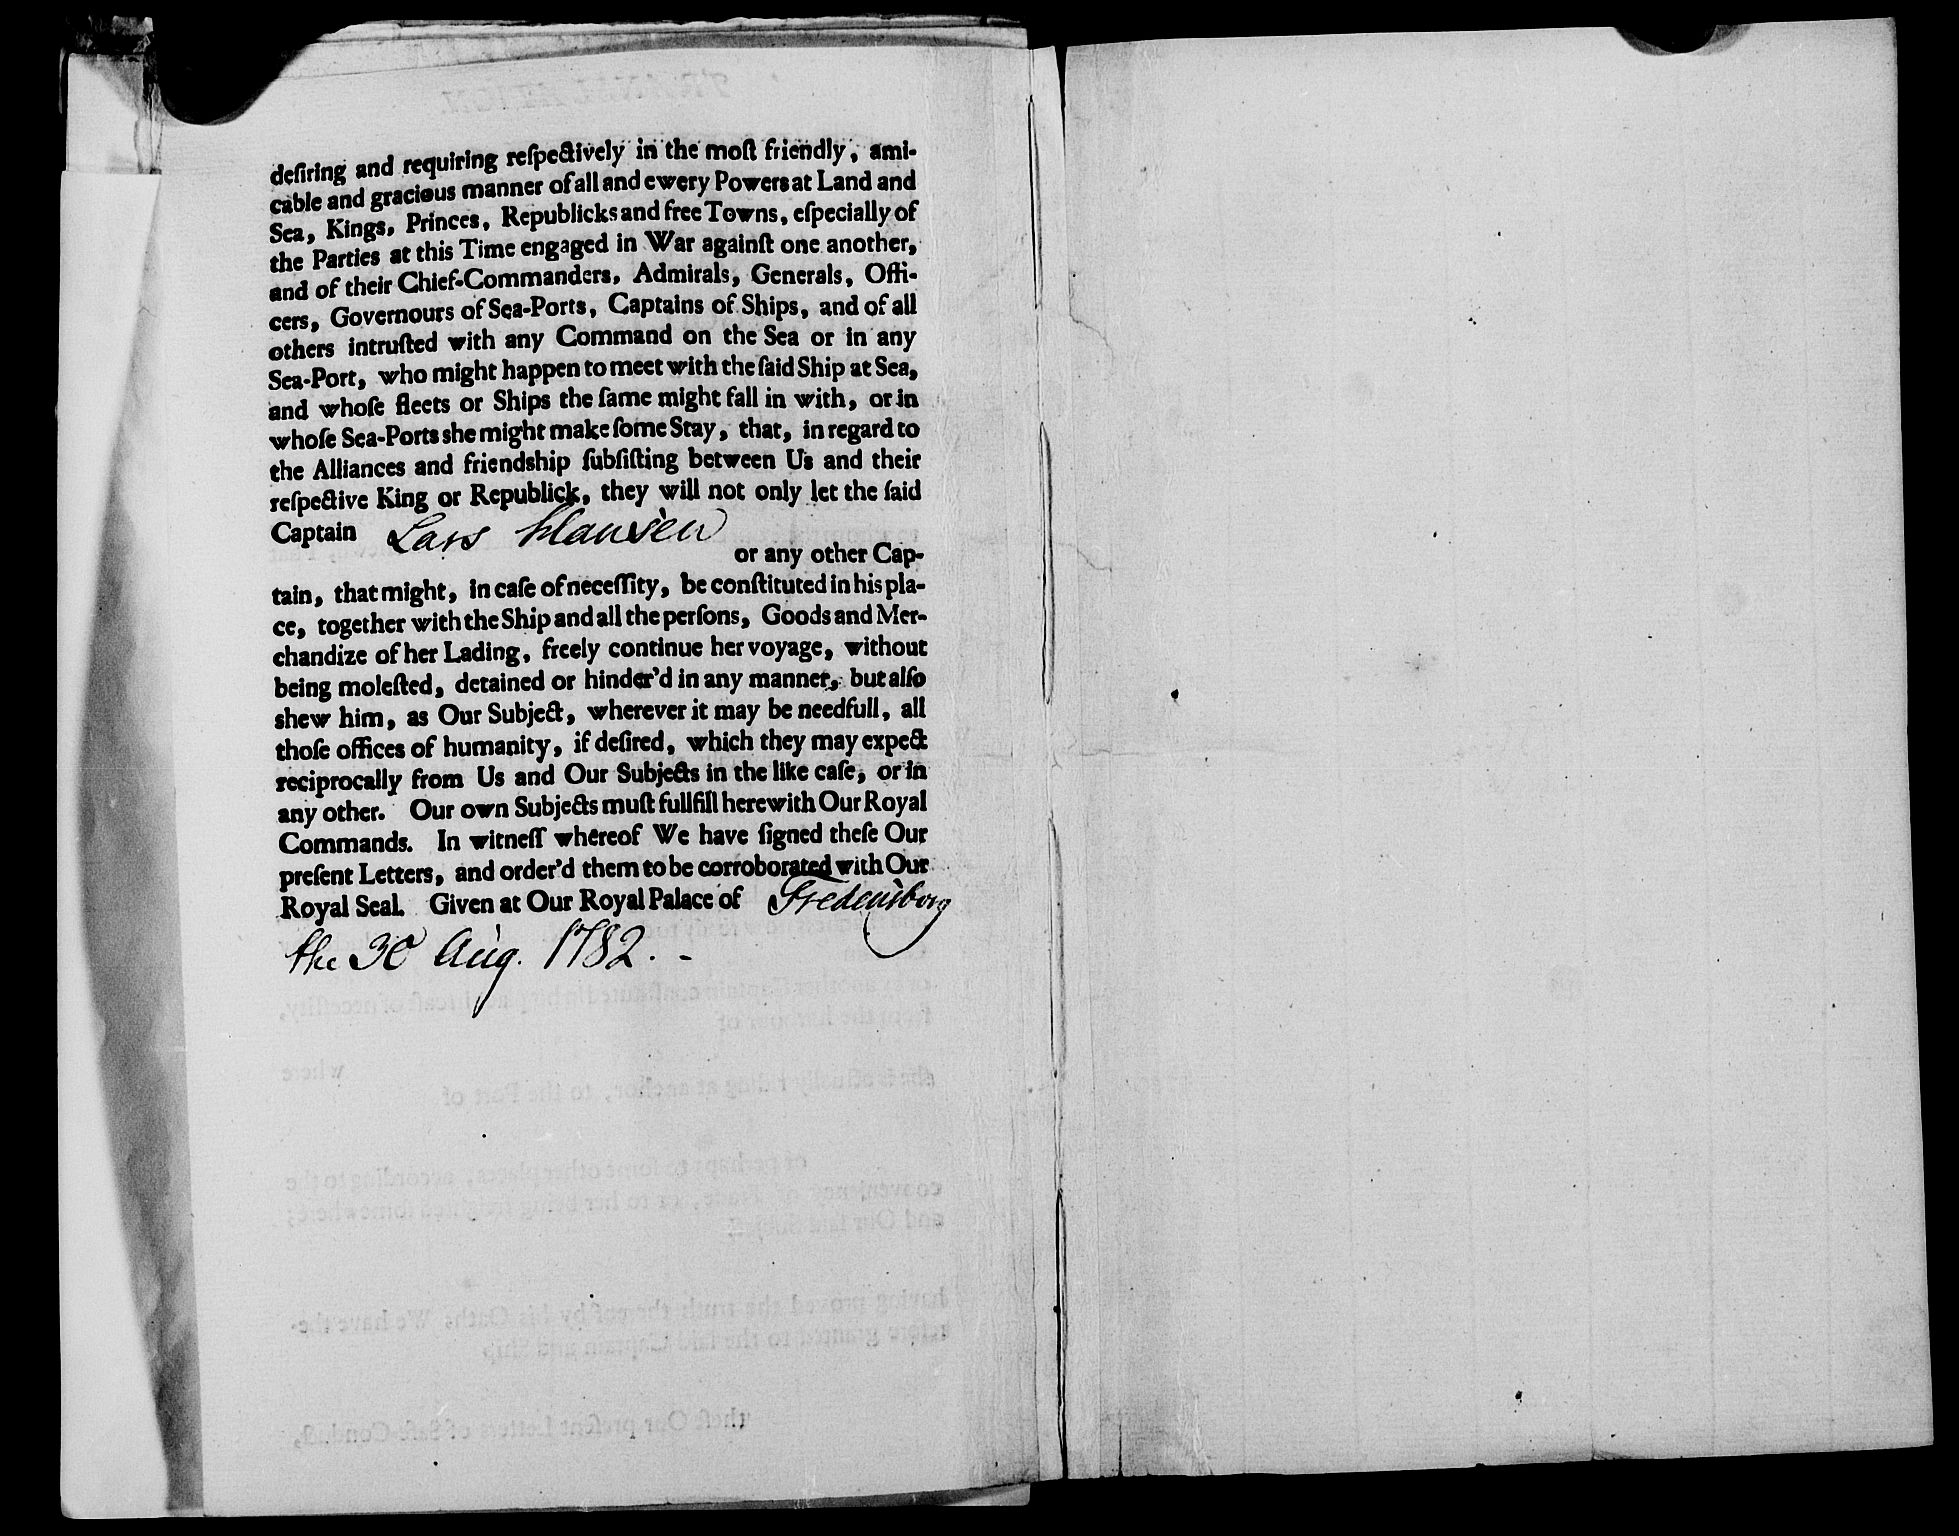 deſiring and requiring reſpectively in the moſt friendly, ami-
cable and gracious manner of all and ewery Powers at Land and
Sea, Kings, Princes, Republicks and free Towns, eſpecially of
the Parties at this Time engaged in War againſt one another,
and of their Chief-Commanders, Admirals, Generals, Offi-
cers, Governours of Sea-Ports, Captains of Ships, and of all
others intruſted with any Command on the Sea or in any
Sea-Port, who might happen to meet with the ſaid Ship at Sea,
and whoſe fleets or Ships the ſame might fall in with, or in
whoſe Sea-Ports she might make ſome Stay, that, in regard to
the Alliances and friendship ſubſiſting between Us and their
reſpective King or Republick, they will not only let the ſaid
Captain Lars Hansen
or any other Cap-
tain, that might, in caſe of neceſſity, be conſtituted in his pla-
ce, together with the Ship and all the perſons, Goods and Mer-
chandize of her Lading, freely continue her voyage, without
being moleſted, detained or hinder'd in any manner, but alſo
shew him, as Our Subject, wherever it may be needfull, all
thoſe offices of humanity, if deſired, which they may expect
reciprocally from Us and Our Subjects in the like caſe, or in
any other. Our own Subjects muſt fullfill herewith Our Royal
Commands. In witneſſ whereof We have ſigned theſe Our
preſent Letters, and order'd them to be corroborated with Our
Royal Seal. Given at Our Royal Palace of Fredensborg
the 30 Aug. 1782. -